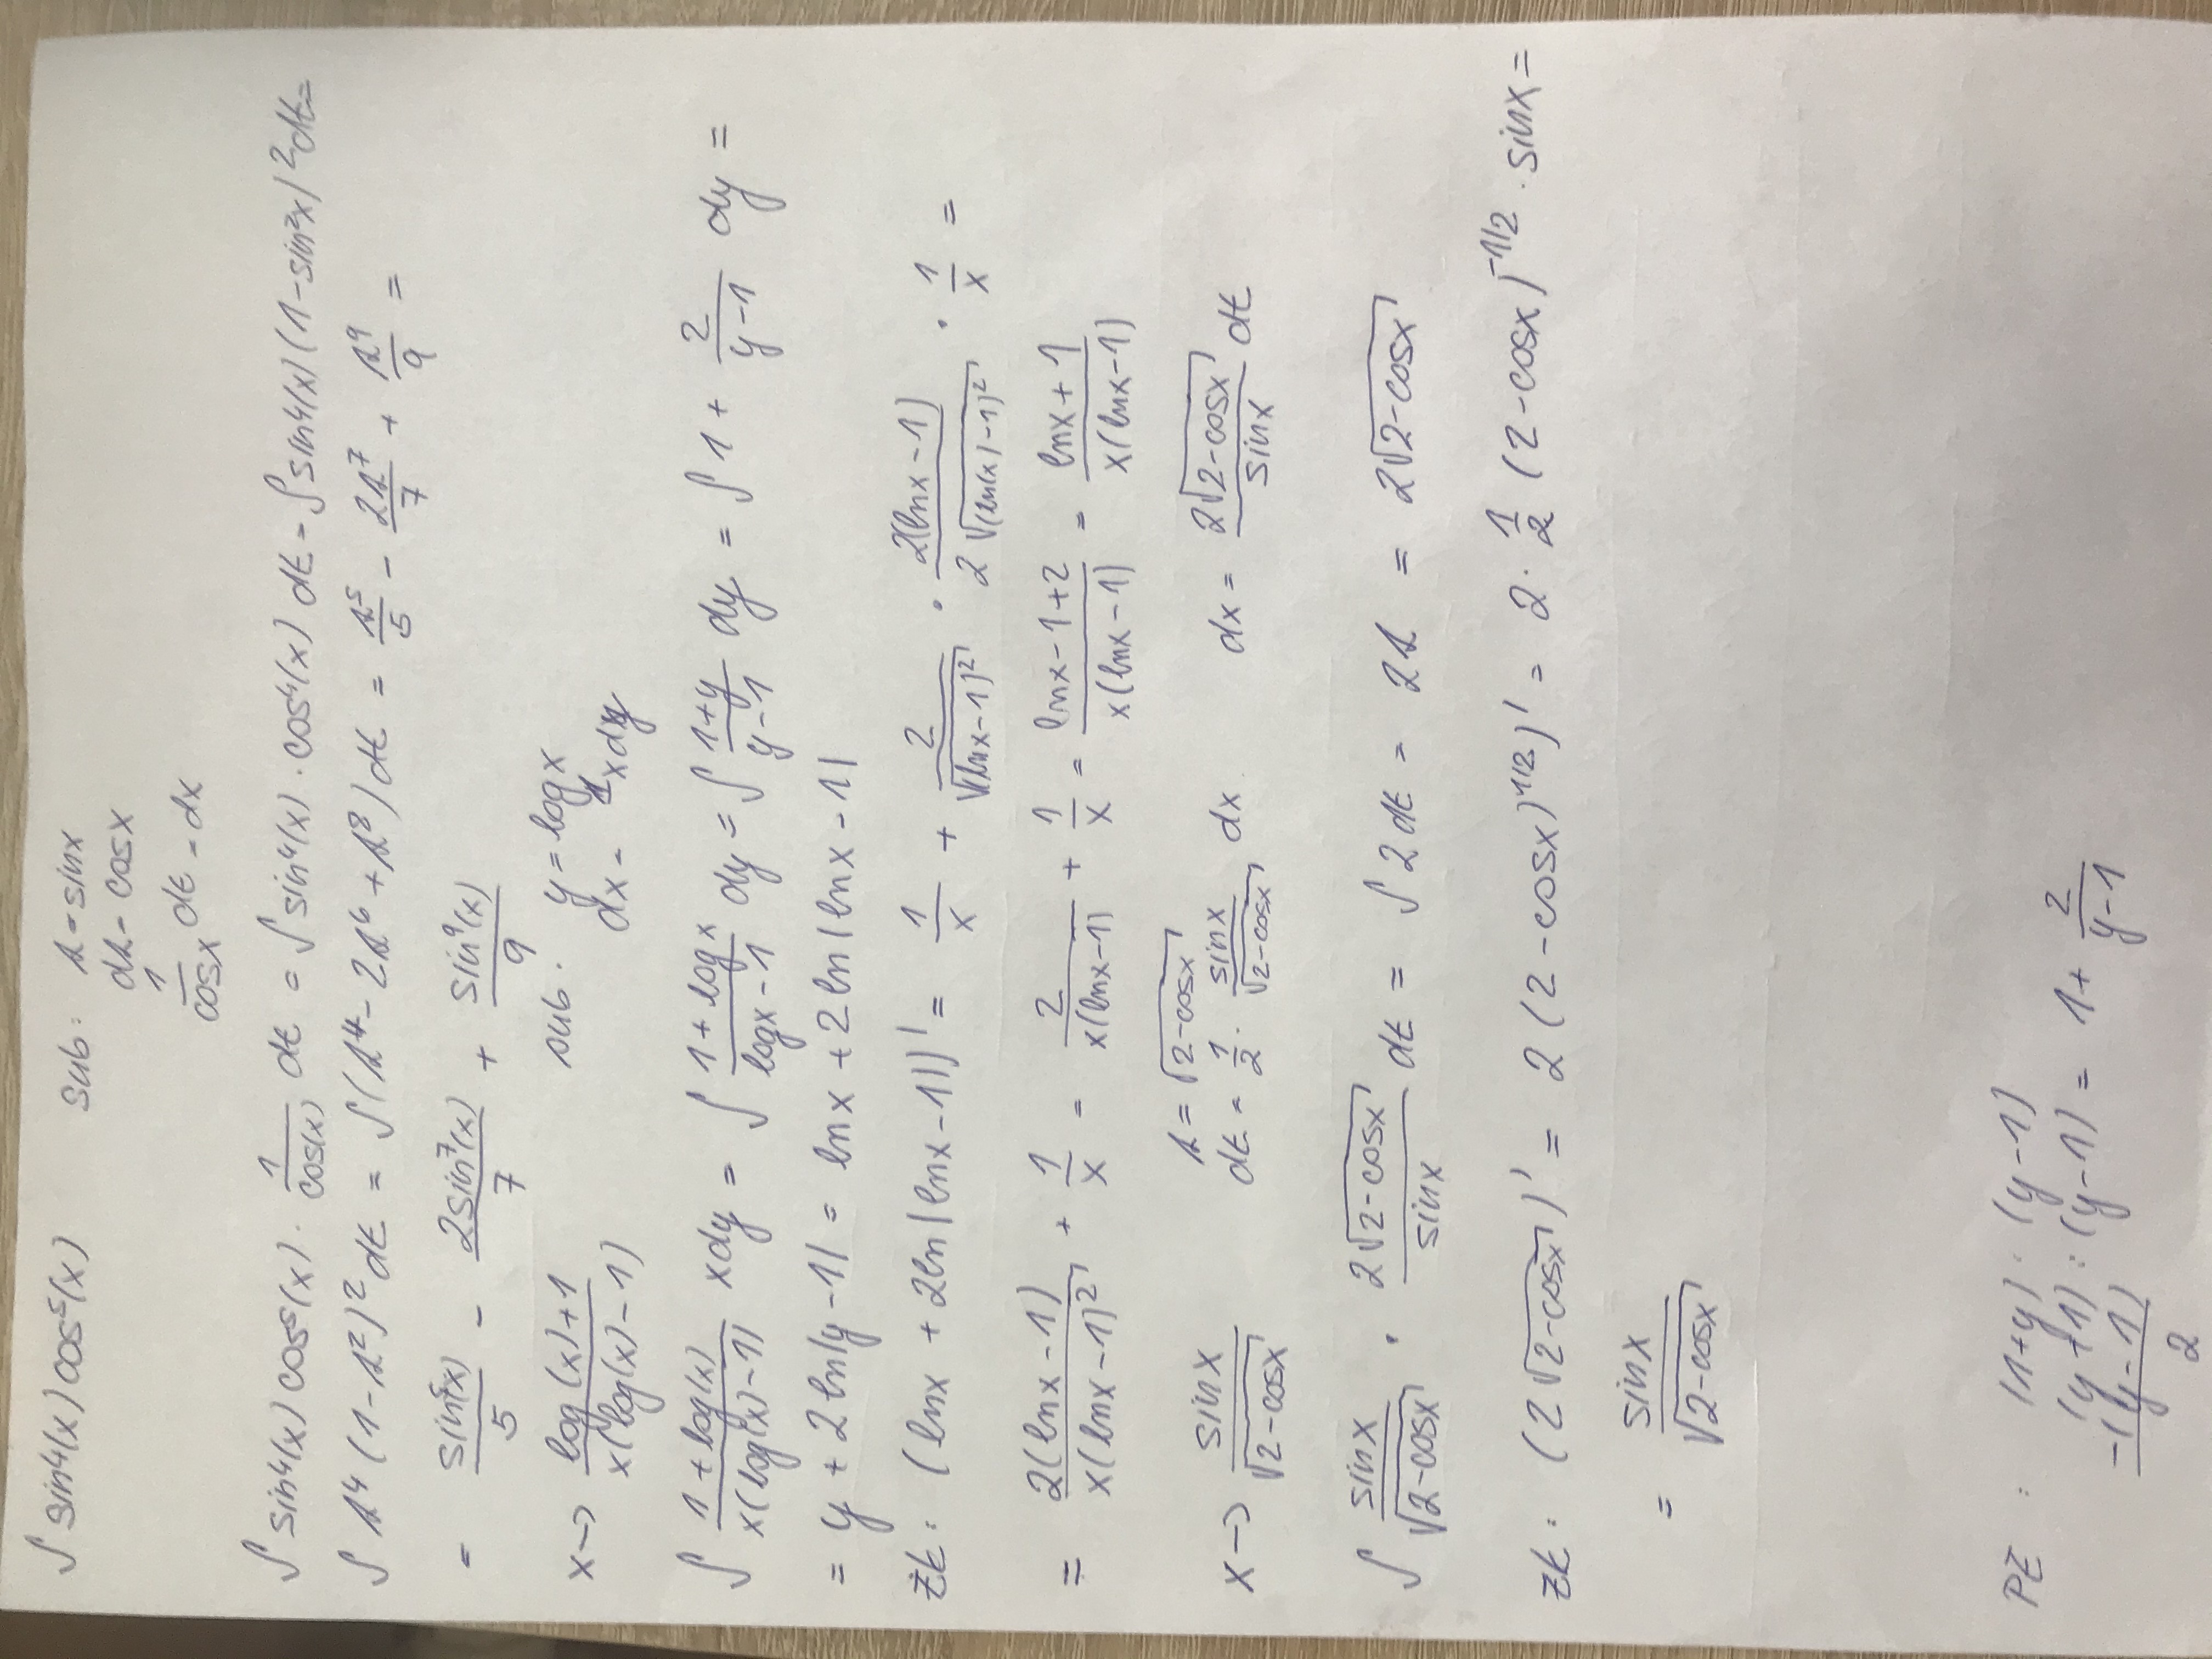 ∫ sin⁴(x) cos⁵(x) sub: s = sinx
ds = cosx
1/cosx dt = dx
∫ sin⁴(x) cos⁵(x) · 1/cos(x) dt = ∫ sin⁴(x) · cos⁴(x) dt = ∫ sin⁴(x) (1-sin²x)² dt =
∫ s⁴ (1-s²)² dt = ∫ (s⁴ - 2s⁶ + s⁸) dt = s⁵/5 - 2s⁷/7 + s⁹/9 =
= sin⁵(x)/5 - 2sin⁷(x)/7 + sin⁹(x)/9
x → (log(x)+1)/(x(log(x)-1)) sub. y = log x
dx = x dy
∫ (1+log(x))/(x(log(x)-1)) xdy = ∫ (1+log x)/(log x-1) dy = ∫ (1+y)/(y-1) dy = ∫ 1 + 2/(y-1) dy =
= y + 2 ln|y-1| = lnx + 2 ln|lnx-1|
zk: (lnx + 2ln|lnx-1|)' = 1/x + 2/√(lnx-1)² · 2(lnx-1)/(2√(ln(x)-1)²) · 1/x =
= 2(lnx-1)/(x(lnx-1)²) + 1/x = 2/(x(lnx-1)) + 1/x = (lnx-1+2)/(x(lnx-1)) = (lnx+1)/(x(lnx-1))
x → sinx/√(2-cosx) s = √(2-cosx)
dt = 1/2 · sinx/√(2-cosx) dx dx = 2√(2-cosx)/sinx dt
∫ sinx/√(2-cosx) · 2√(2-cosx)/sinx dt = ∫ 2 dt = 2s = 2√(2-cosx)
zk: (2√(2-cosx))' = 2 (2-cosx)^(1/2))' = 2 · 1/2 (2-cosx)^(-1/2) · sinx =
= sinx/√(2-cosx)
PZ: (1+y) : (y-1)
(y+1) : (y-1) = 1 + 2/(y-1)
-(y-1)
2